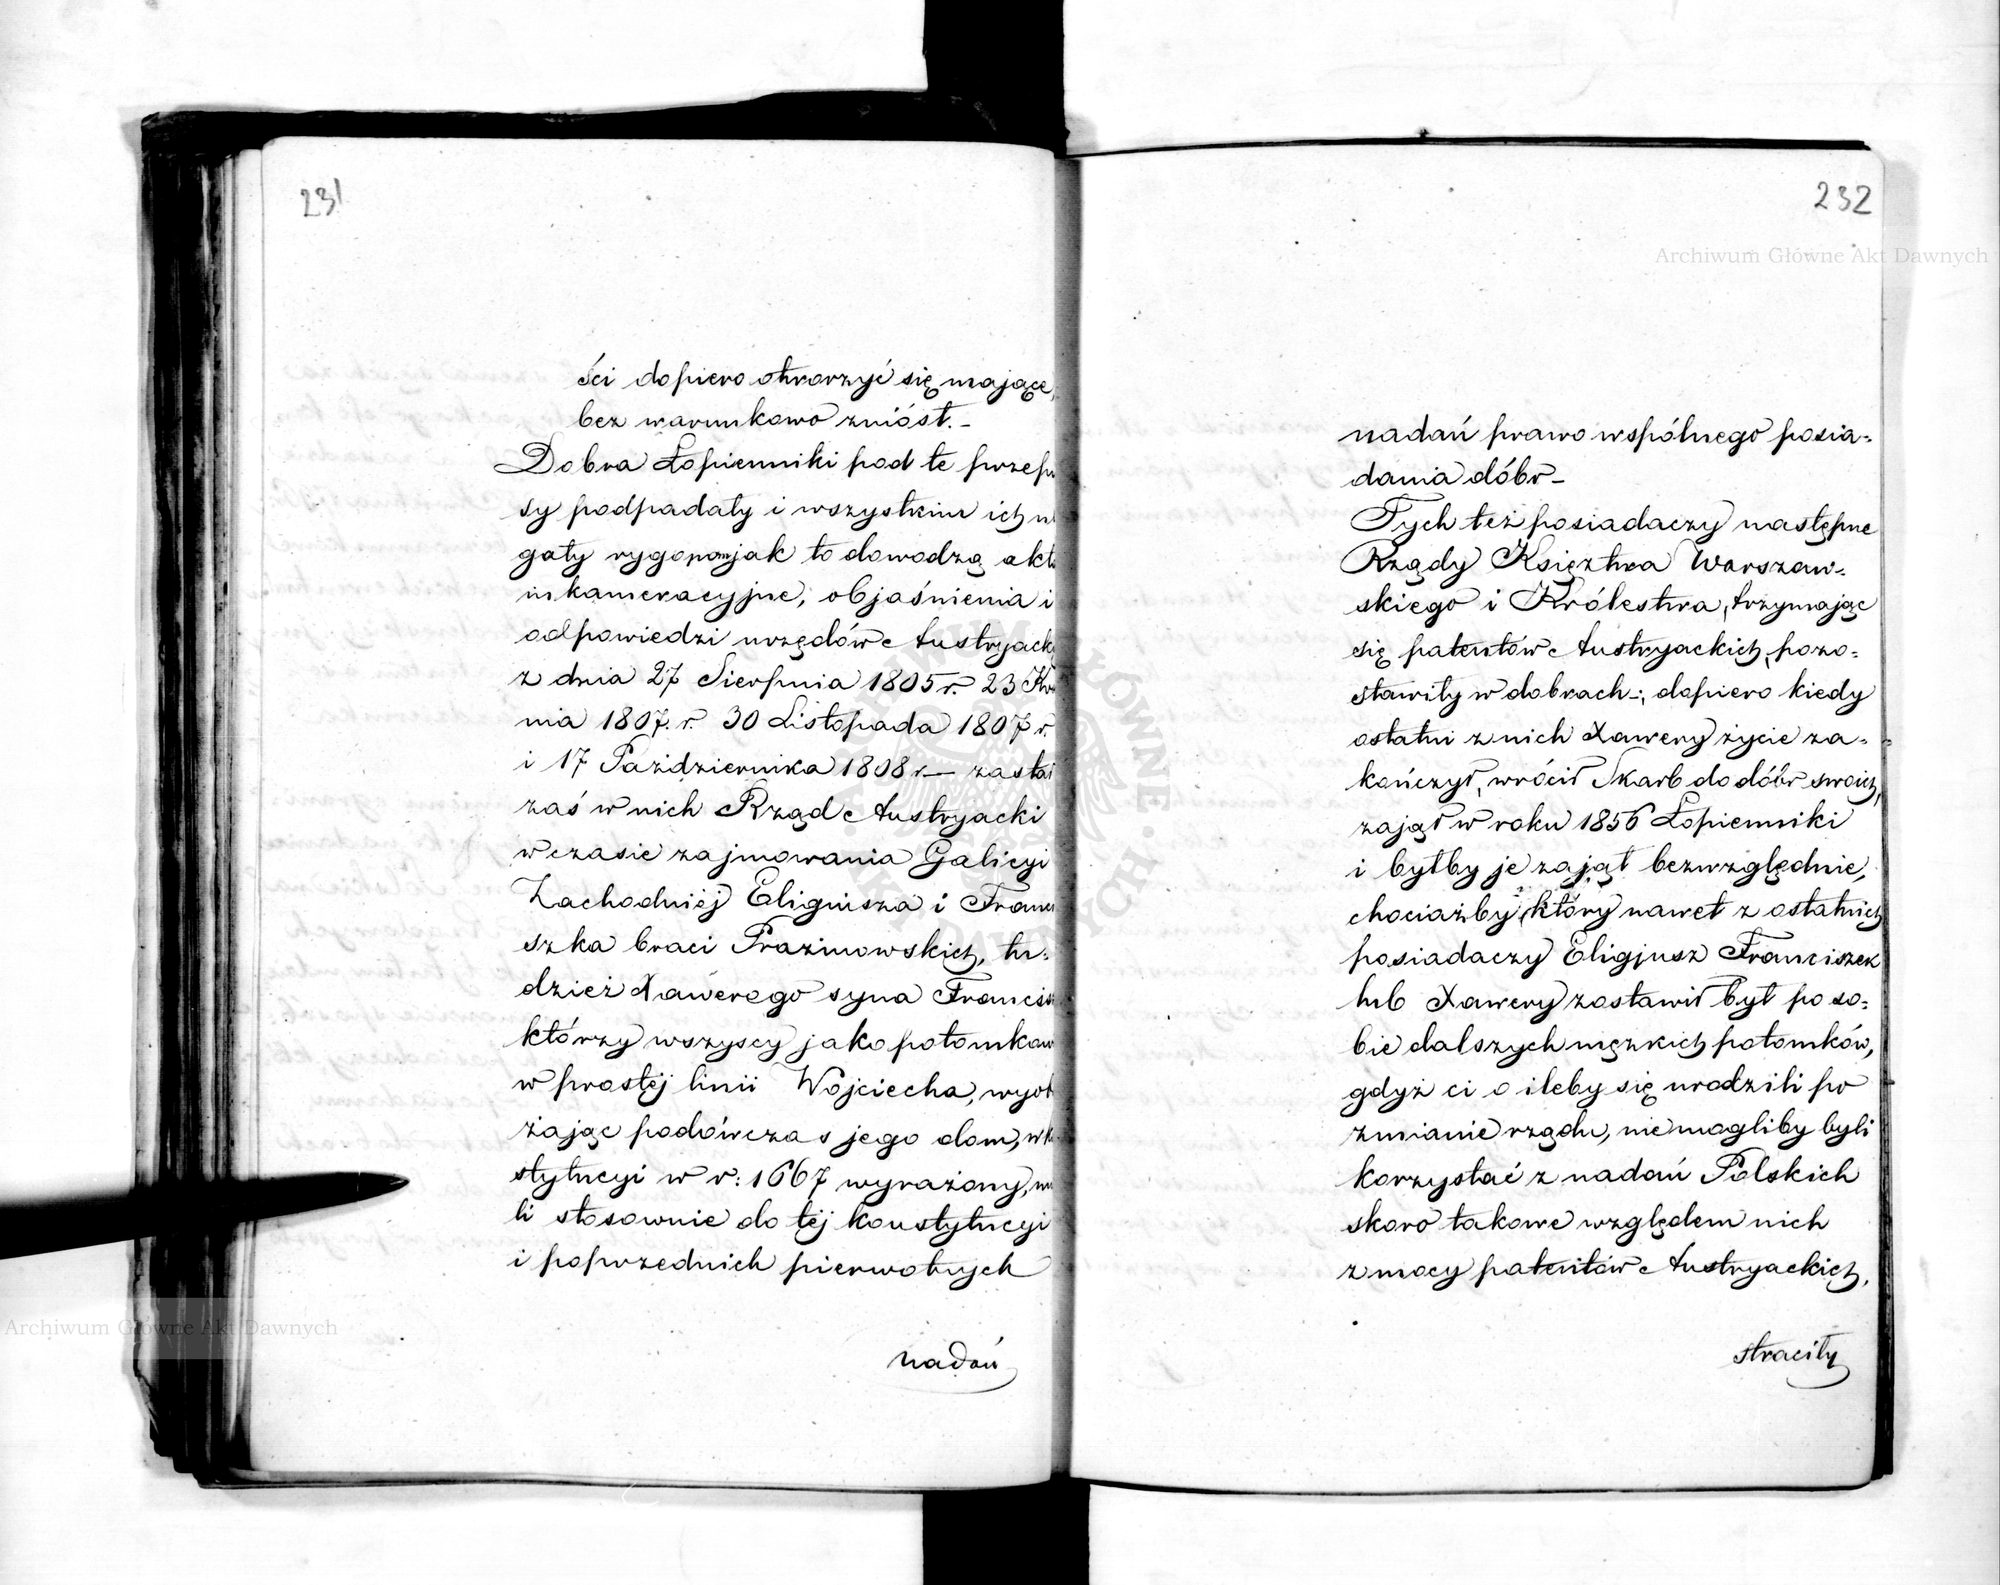 231
ści dopiero otworzyć się mające,
bez warunkowo zniósł.-
Dobra Łopienniki pod te przepi
sy podpadały i wszystkim ich ule
gały rygorom jak to dowodzą akta
inkameracyjne, objaśnienia i
odpowiedzi urzędów Austryack
z dnia 27 Sierpnia 1805 r. 23 Kw
nia 1807. r. 30 Listopada 1807 r.
i 17 Października 1808 r— zastał
zaś w nich Rząd Austryacki
w czasie zajmowania Galicyi
Zachodniéj Eligiusza i Franci
szka braci Prażmowskich, tu=
dzież Xawerego syna Francisz
którzy wszyscy jako potomkow
w prostéj linii Wojciecha, wyob
żając podówczas jego dom, w ko
stytucyi w r: 1667 wyrażony, mie
li stosownie do téj konstytucyi
i poprzednich pierwotnych
nadań
232
Archiwum Główne Akt Dawnych
nadań prawo wspólnego posia=
dania dóbr_
Tych też posiadaczy następne
Rządy Księztwa Warszaw=
skiego i Królestwa, trzymając
się patentów Austryackich, pozo=
stawiły w dobrach-; dopiero kiedy
ostatni z nich Xawery życie za=
kończył, wrócił Skarb do dóbr swoich,
zajął w roku 1856 Łopienniki
i byłby je zajął bezwzględnie,
chociażby, który nawet z ostatnich
posiadaczy Eligjusz Franciszek
lub Xawery zostawił był po so=
bie dalszych męzkich potomków,
gdyż ci o ileby się urodzili po
zmianie rządu, nie mogliby byli
korzystać z nadań Polskich
skoro takowe względem nich
z mocy patentów Austryackich,
straciły
Archiwum Główne Akt Dawnych